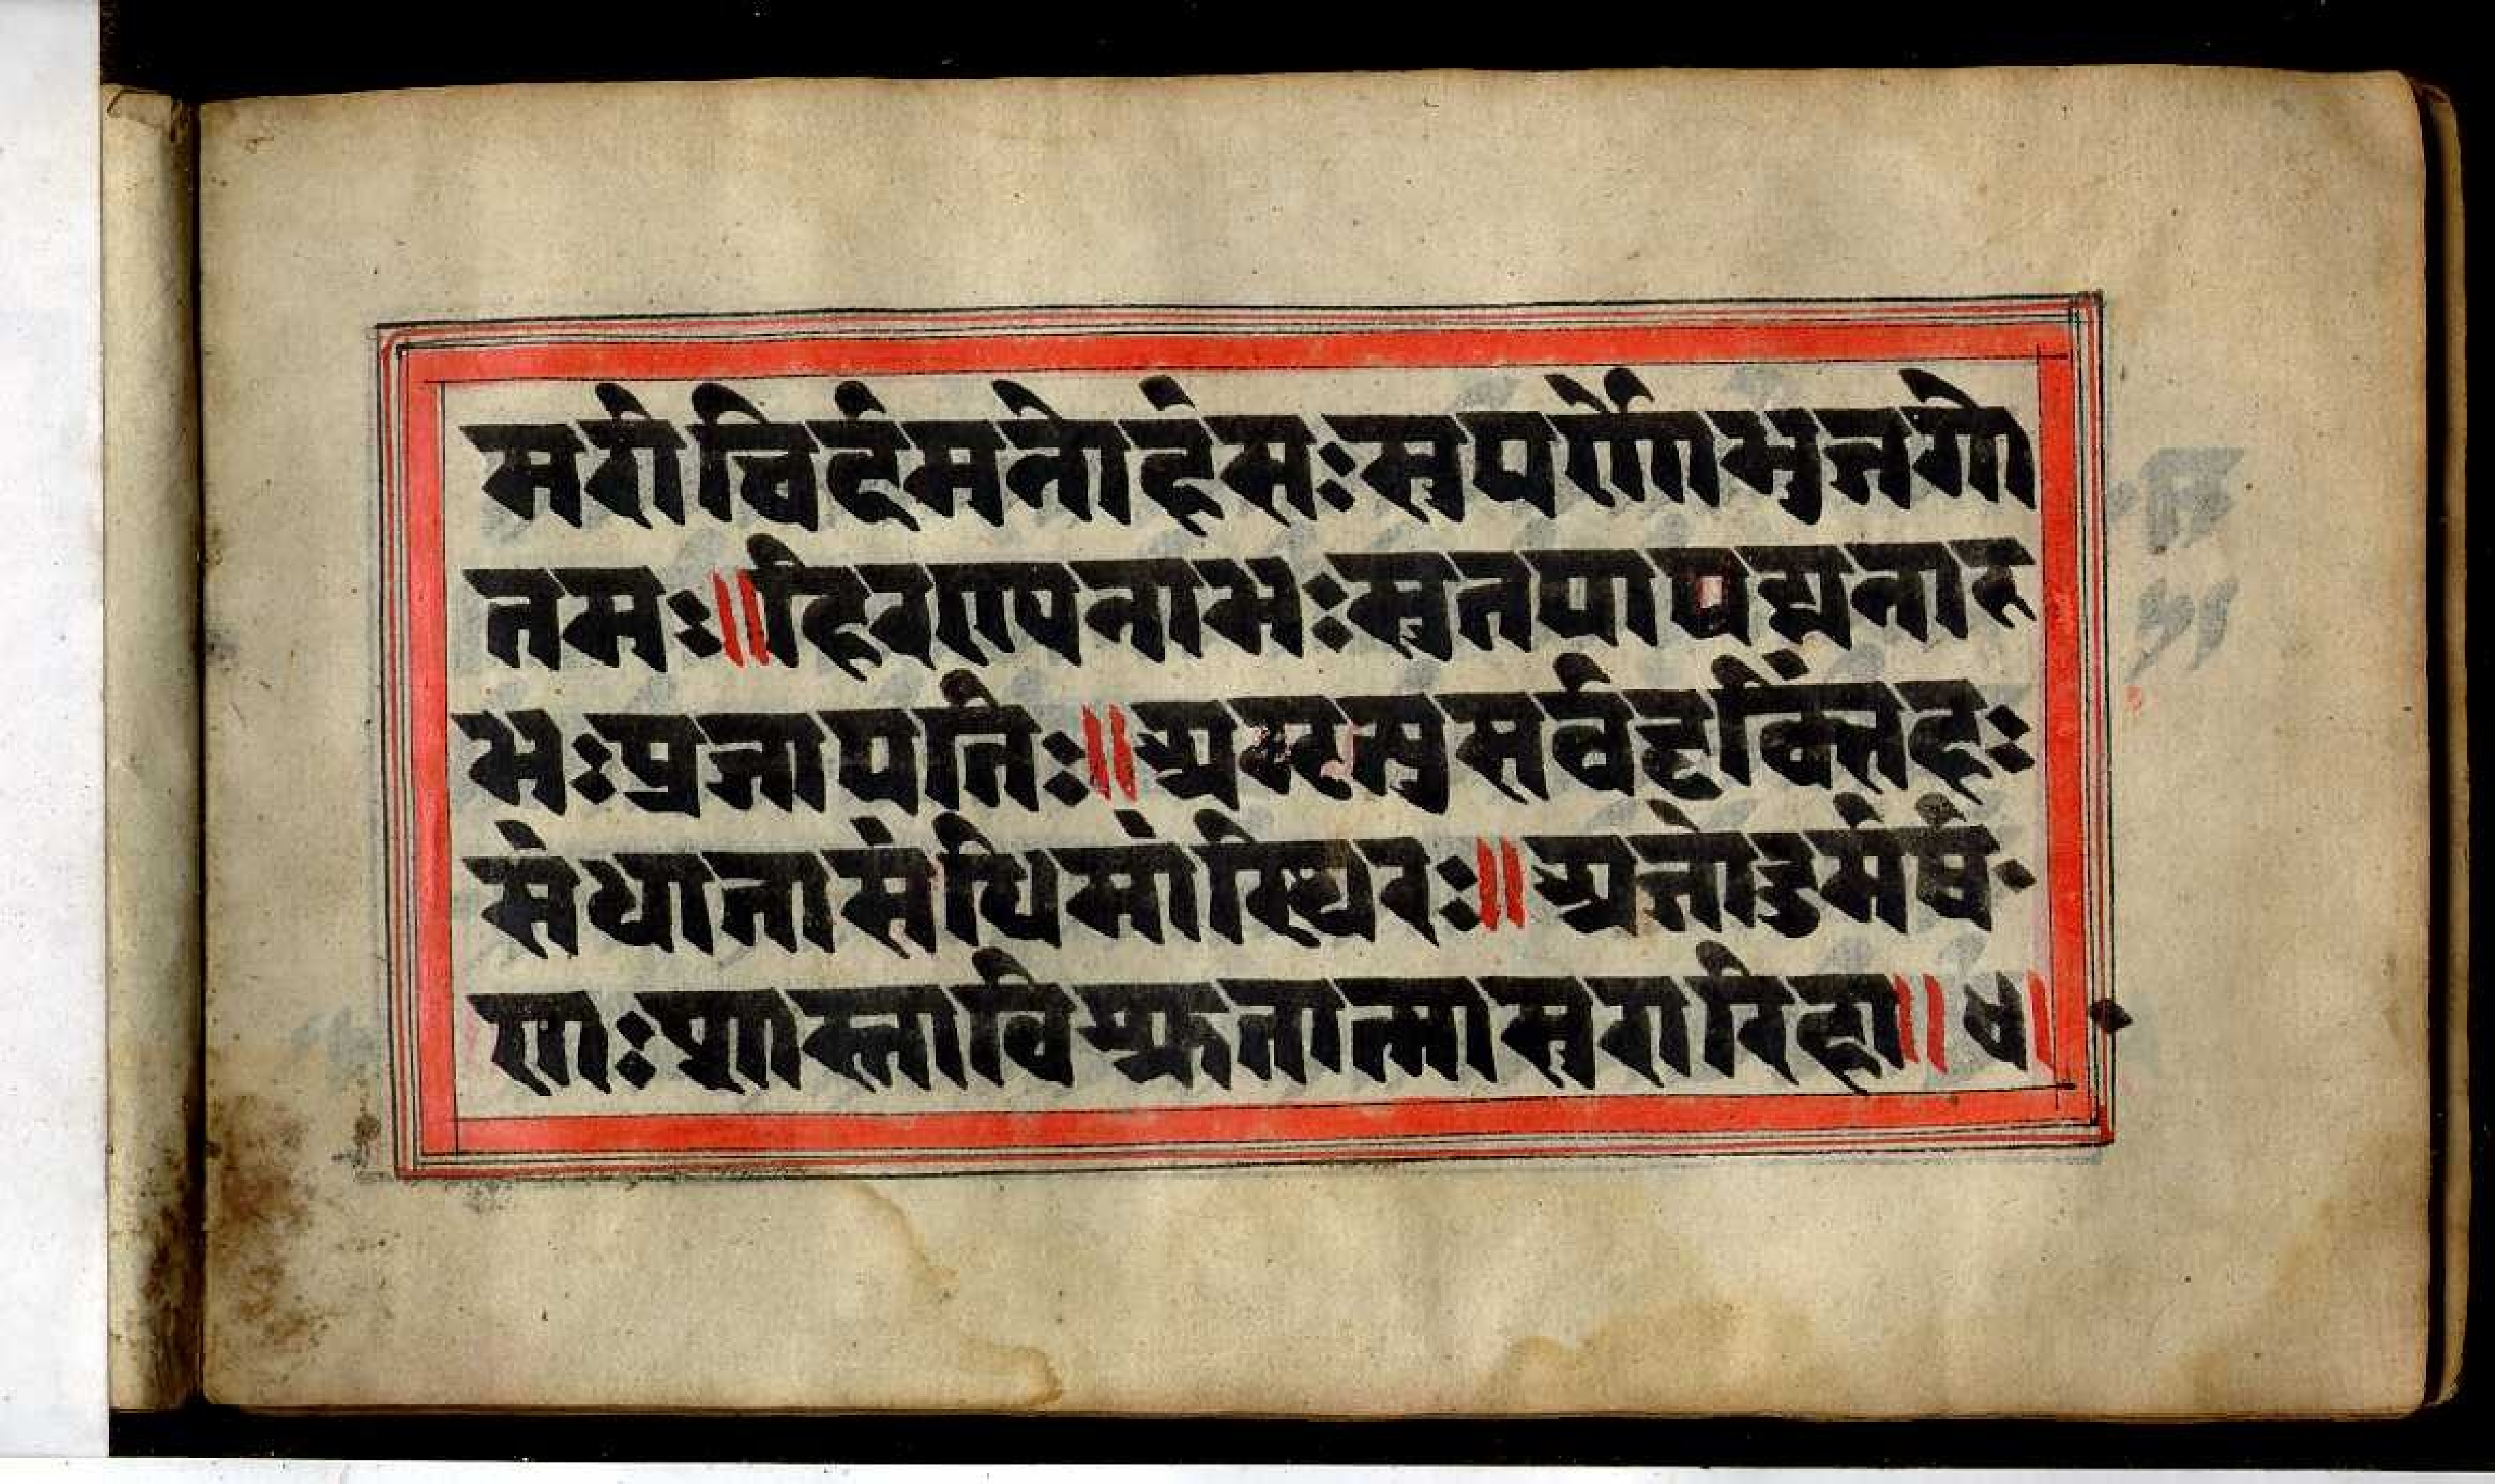 मरीचिर्दमनोहंसःसुपर्णोभुजगो
तमः॥हिरण्यनाभःसुतपापद्मनाह
भःप्रजापतिः॥अमृत्युसर्वदृक्सिंहः
संधातासंधिमांस्थिरः॥अजोदुर्मर्ष
णःशास्ताविश्रुतात्मासुरारिहा॥